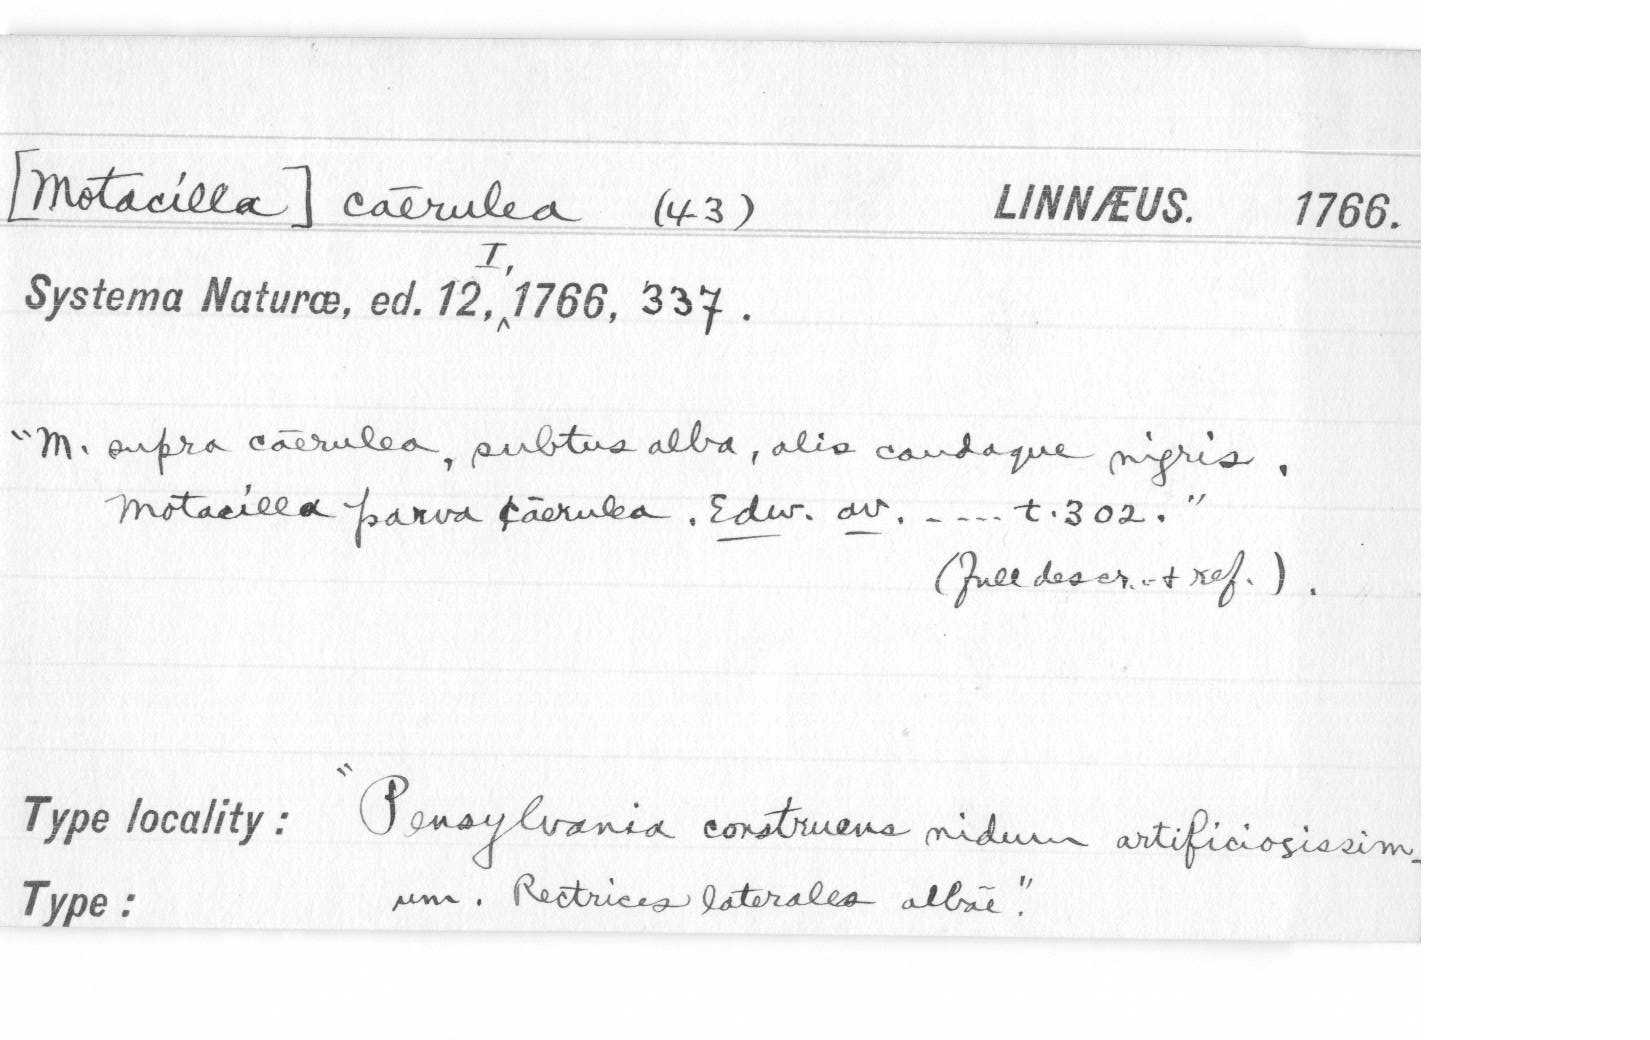 [Motacilla] cāerulea (43) LINNÆUS. 1766.
Systema Naturæ, ed. 12, I, 1766, 337.
"M. supra cāerulea, subtus alba, alis caudaque nigris.
Motacilla parva cāerulea. Edw. av. ----- t. 302."
(Full descr. + ref.).
Type locality: "Pensylvania construens nidum artificiosissim-
Type: um. Rectrices laterales albāe".